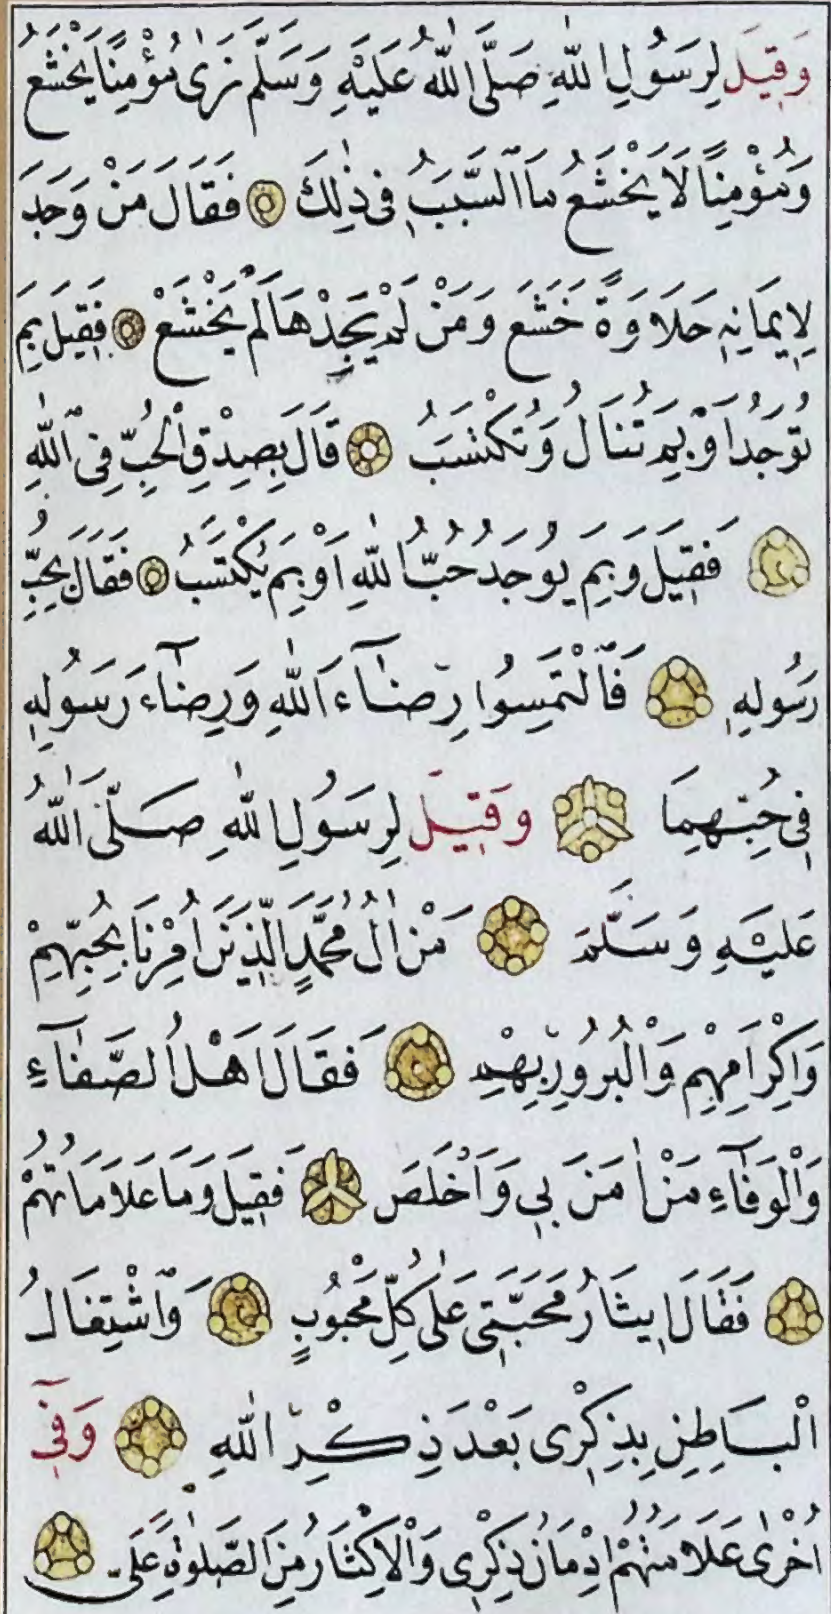 وَقِيلَ لِرَسُولِ اللّٰهِ صَلَّى اللّٰهُ عَلَيْهِ وَسَلَّمَ نَرٰى مُؤْمِنًا يَخْشَعُ
وَمُؤْمِنًا لَا يَخْشَعُ مَا السَّبَبُ فِي ذٰلِكَ فَقَالَ مَنْ وَجَدَ
لِإِيمَانِهِ حَلَاوَةً خَشَعَ وَمَنْ لَمْ يَجِدْهَا لَمْ يَخْشَعْ فَقِيلَ بِمَ
تُوجَدُ اَوْ بِمَ تُنَالُ وَتُكْتَسَبُ قَالَ بِصِدْقِ الْحُبِّ فِي اللّٰهِ
فَقِيلَ وَبِمَ يُوجَدُ حُبُّ اللّٰهِ اَوْ بِمَ يُكْتَسَبُ فَقَالَ بِحُبِّ
رَسُولِهِ فَالْتَمِسُوا رِضَآءَ اللّٰهِ وَرِضَآءَ رَسُولِهِ
فِي حُبِّهِمَا وَقِيلَ لِرَسُولِ اللّٰهِ صَلَّى اللّٰهُ
عَلَيْهِ وَسَلَّمَ مَنْ اٰلُ مُحَمَّدٍ الَّذِينَ اُمِرْنَا بِحُبِّهِمْ
وَاِكْرَامِهِمْ وَالْبُرُورِ بِهِمْ فَقَالَ اَهْلُ الصَّفَآءِ
وَالْوَفَآءِ مَنْ اٰمَنَ بِي وَاَخْلَصَ فَقِيلَ وَمَا عَلَامَاتُهُمْ
فَقَالَ اِيثَارُ مَحَبَّتِي عَلٰى كُلِّ مَحْبُوبٍ وَاشْتِغَالُ
الْبَاطِنِ بِذِكْرِي بَعْدَ ذِكْرِ اللّٰهِ وَفِي
اُخْرٰى عَلَامَتُهُمْ اِدْمَانُ ذِكْرِي وَالْاِكْثَارُ مِنَ الصَّلٰوةِ عَلَيَّ